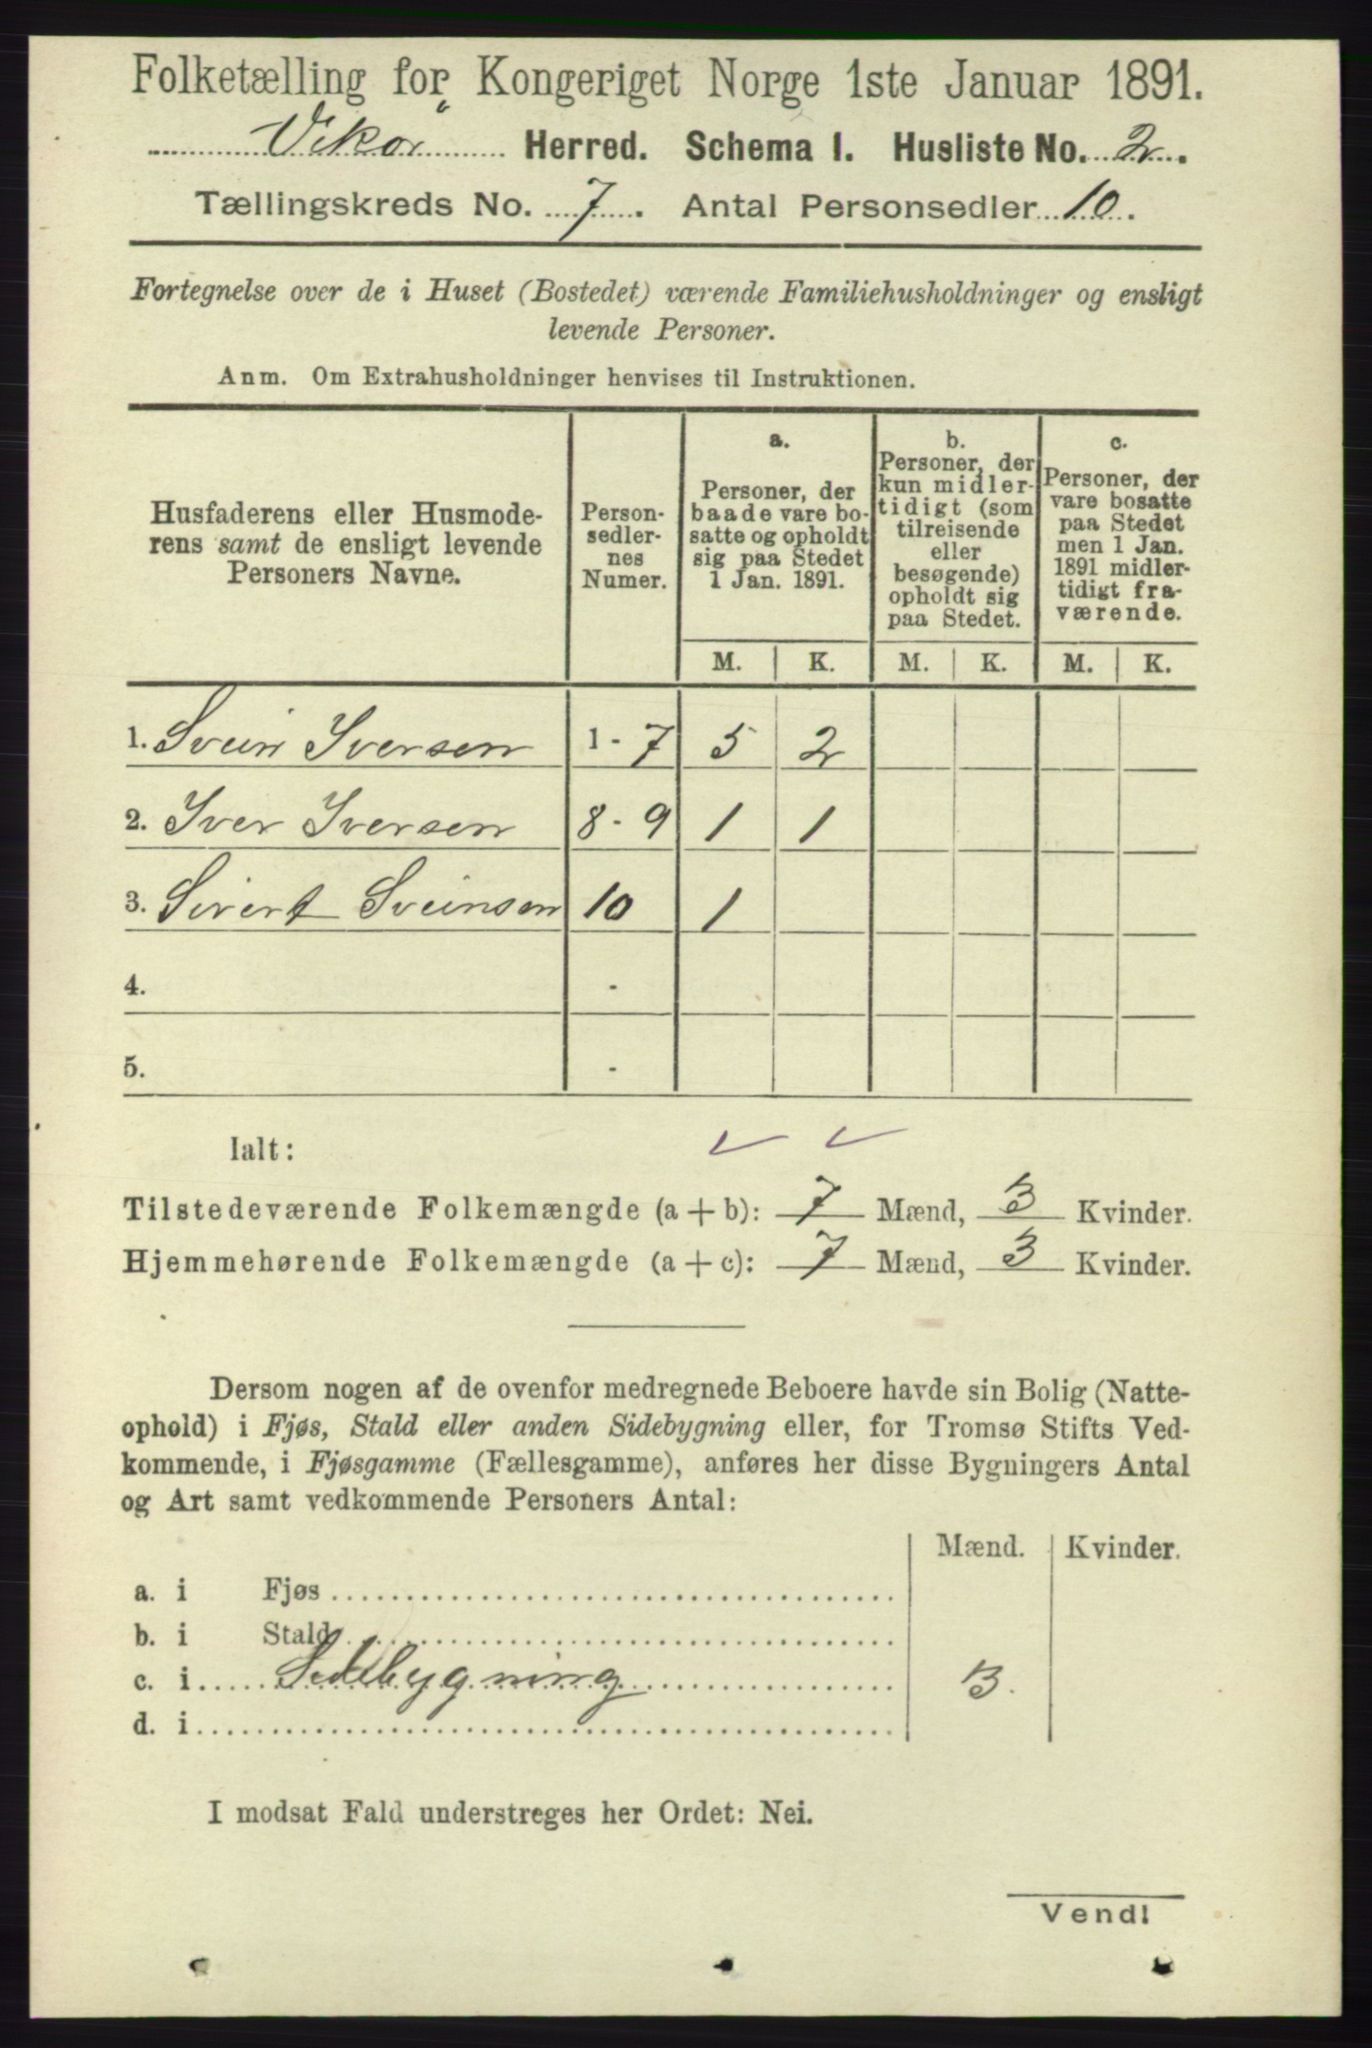 Folketælling for Kongeriget Norge 1ste Januar 1891.
Vikør Herred. Schema I. Husliste No. 2.
Tællingskreds No. 7. Antal Personsedler 10.
Fortegnelse over de i Huset (Bostedet) værende Familiehusholdninger og ensligt
levende Personer.
Anm. Om Extrahusholdninger henvises til Instruktionen.
Husfaderens eller Husmode-
rens samt de ensligt levende
Personers Navne.
Person-
sedler-
nes
Numer.
a.
Personer, der
baade vare bo-
satte og opholdt
sig paa Stedet
1 Jan. 1891.
b.
Personer, der
kun midler-
tidigt (som
tilreisende
eller
besøgende)
opholdt sig
paa Stedet.
c.
Personer, der
vare bosatte
paa Stedet
men 1 Jan.
1891 midler-
tidigt fra-
værende.
M. K. M. K. M. K.
1. Svein Iversen 1 - 7 5 2
2. Iver Iversen 8 - 9 1 1
3. Sivert Sveinsen 10 1
4. -
5. -
Ialt:
Tilstedeværende Folkemængde (a + b): 7 Mænd, 3 Kvinder.
Hjemmehørende Folkemængde (a + c): 7 Mænd, 3 Kvinder.
Dersom nogen af de ovenfor medregnede Beboere havde sin Bolig (Natte-
ophold) i Fjøs, Stald eller anden Sidebygning eller, for Tromsø Stifts Ved-
kommende, i Fjøsgamme (Fællesgamme), anføres her disse Bygningers Antal
og Art samt vedkommende Personers Antal:
Mænd. Kvinder.
a. i Fjøs
b. i Stald
c. i Sidebygning 3.
d. i
I modsat Fald understreges her Ordet: Nei.
Vend!